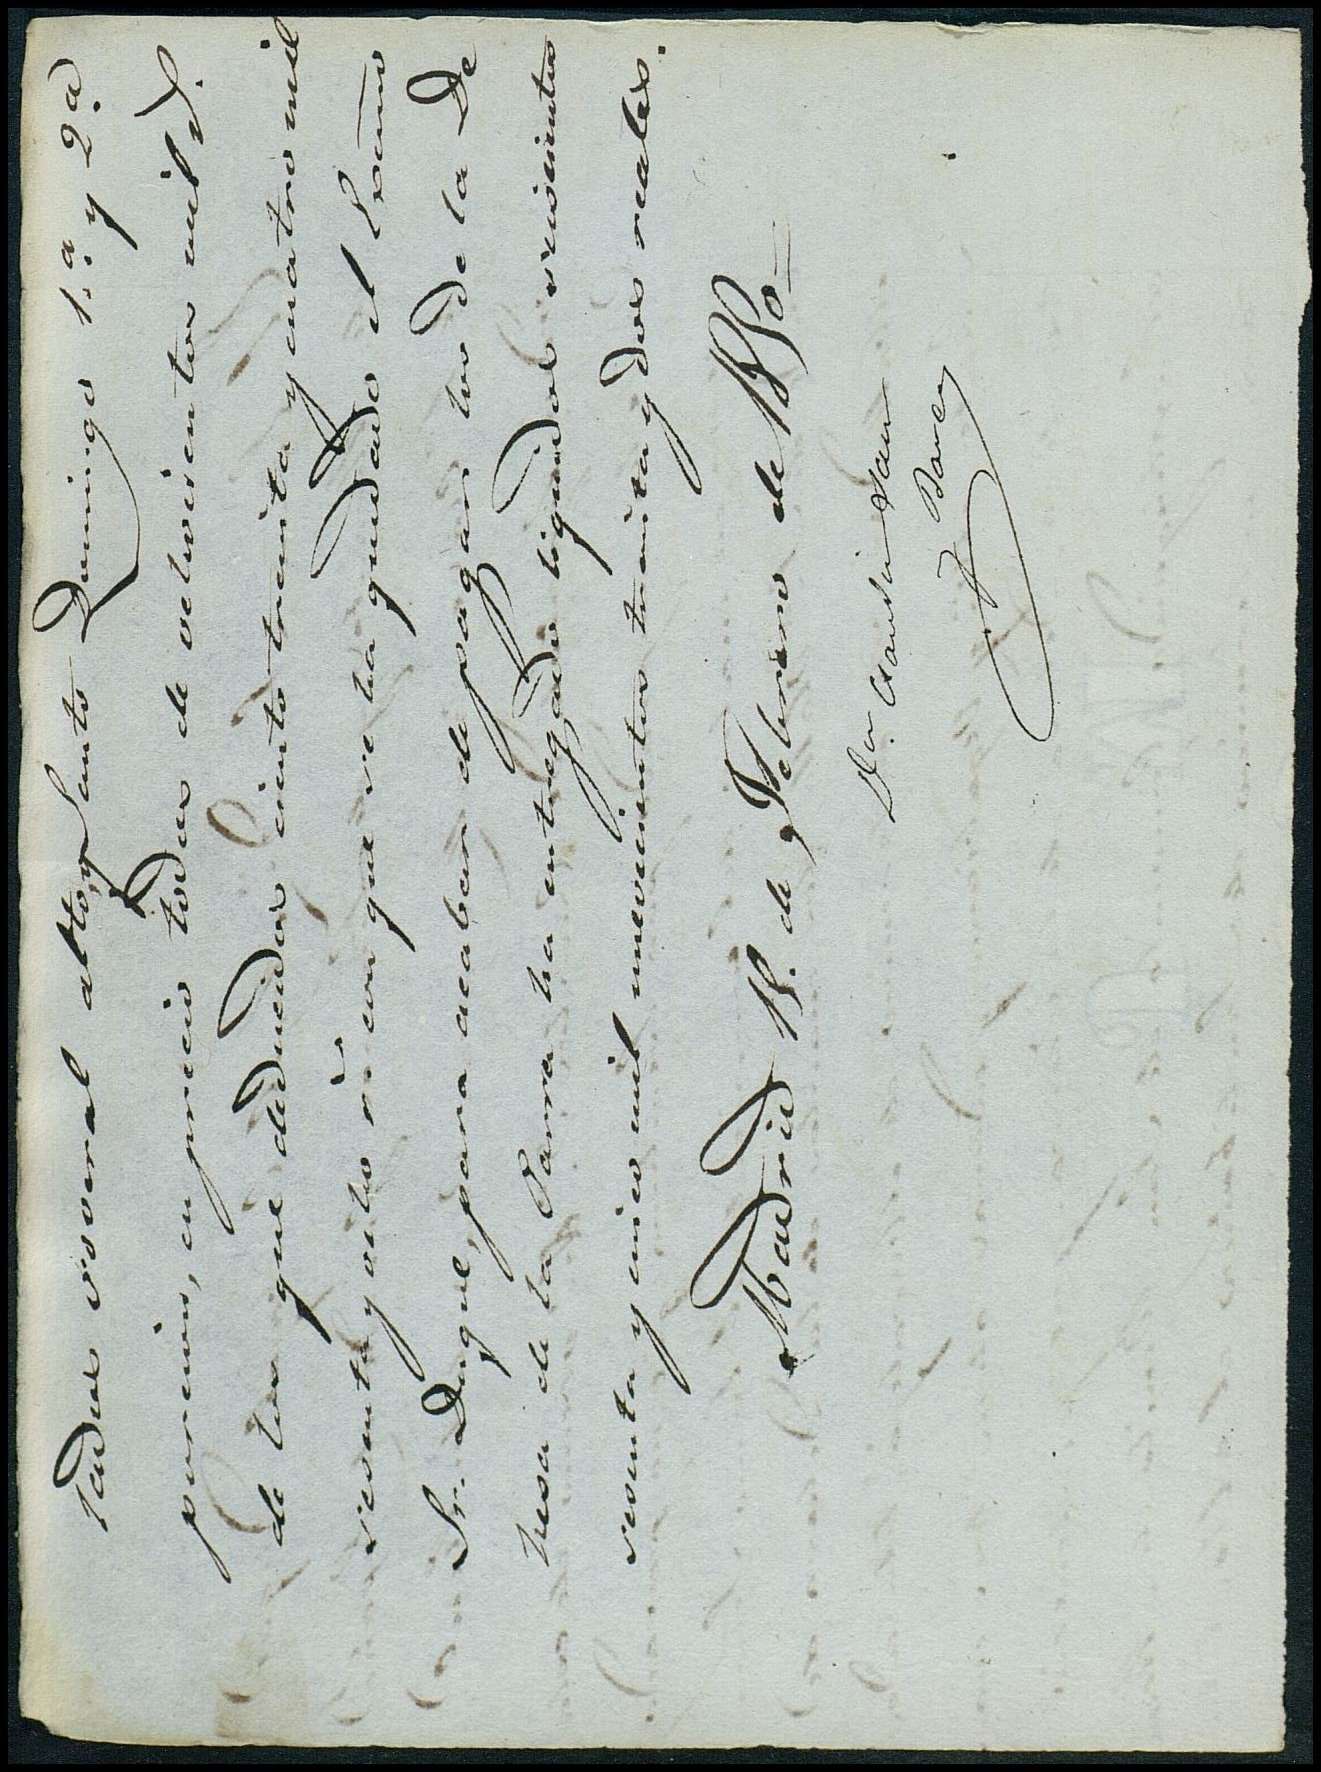 tadas vsoral alto, y Santo Domingo 1.ª y 2.ª
porcion, en precio todas de ochocientos mil r.s
de los que deducidos ciento treinta y cuatro mil
sesenta y ocho r.s con que se ha quedado el Excmo
Sr. Duque, para acabar de pagar los de la De
hesa de la Parra ha entregado liquidos seiscientos
sesenta y cinco mil novecientos treinta y dos reales.
Madrid 13. de Febrero de 1350